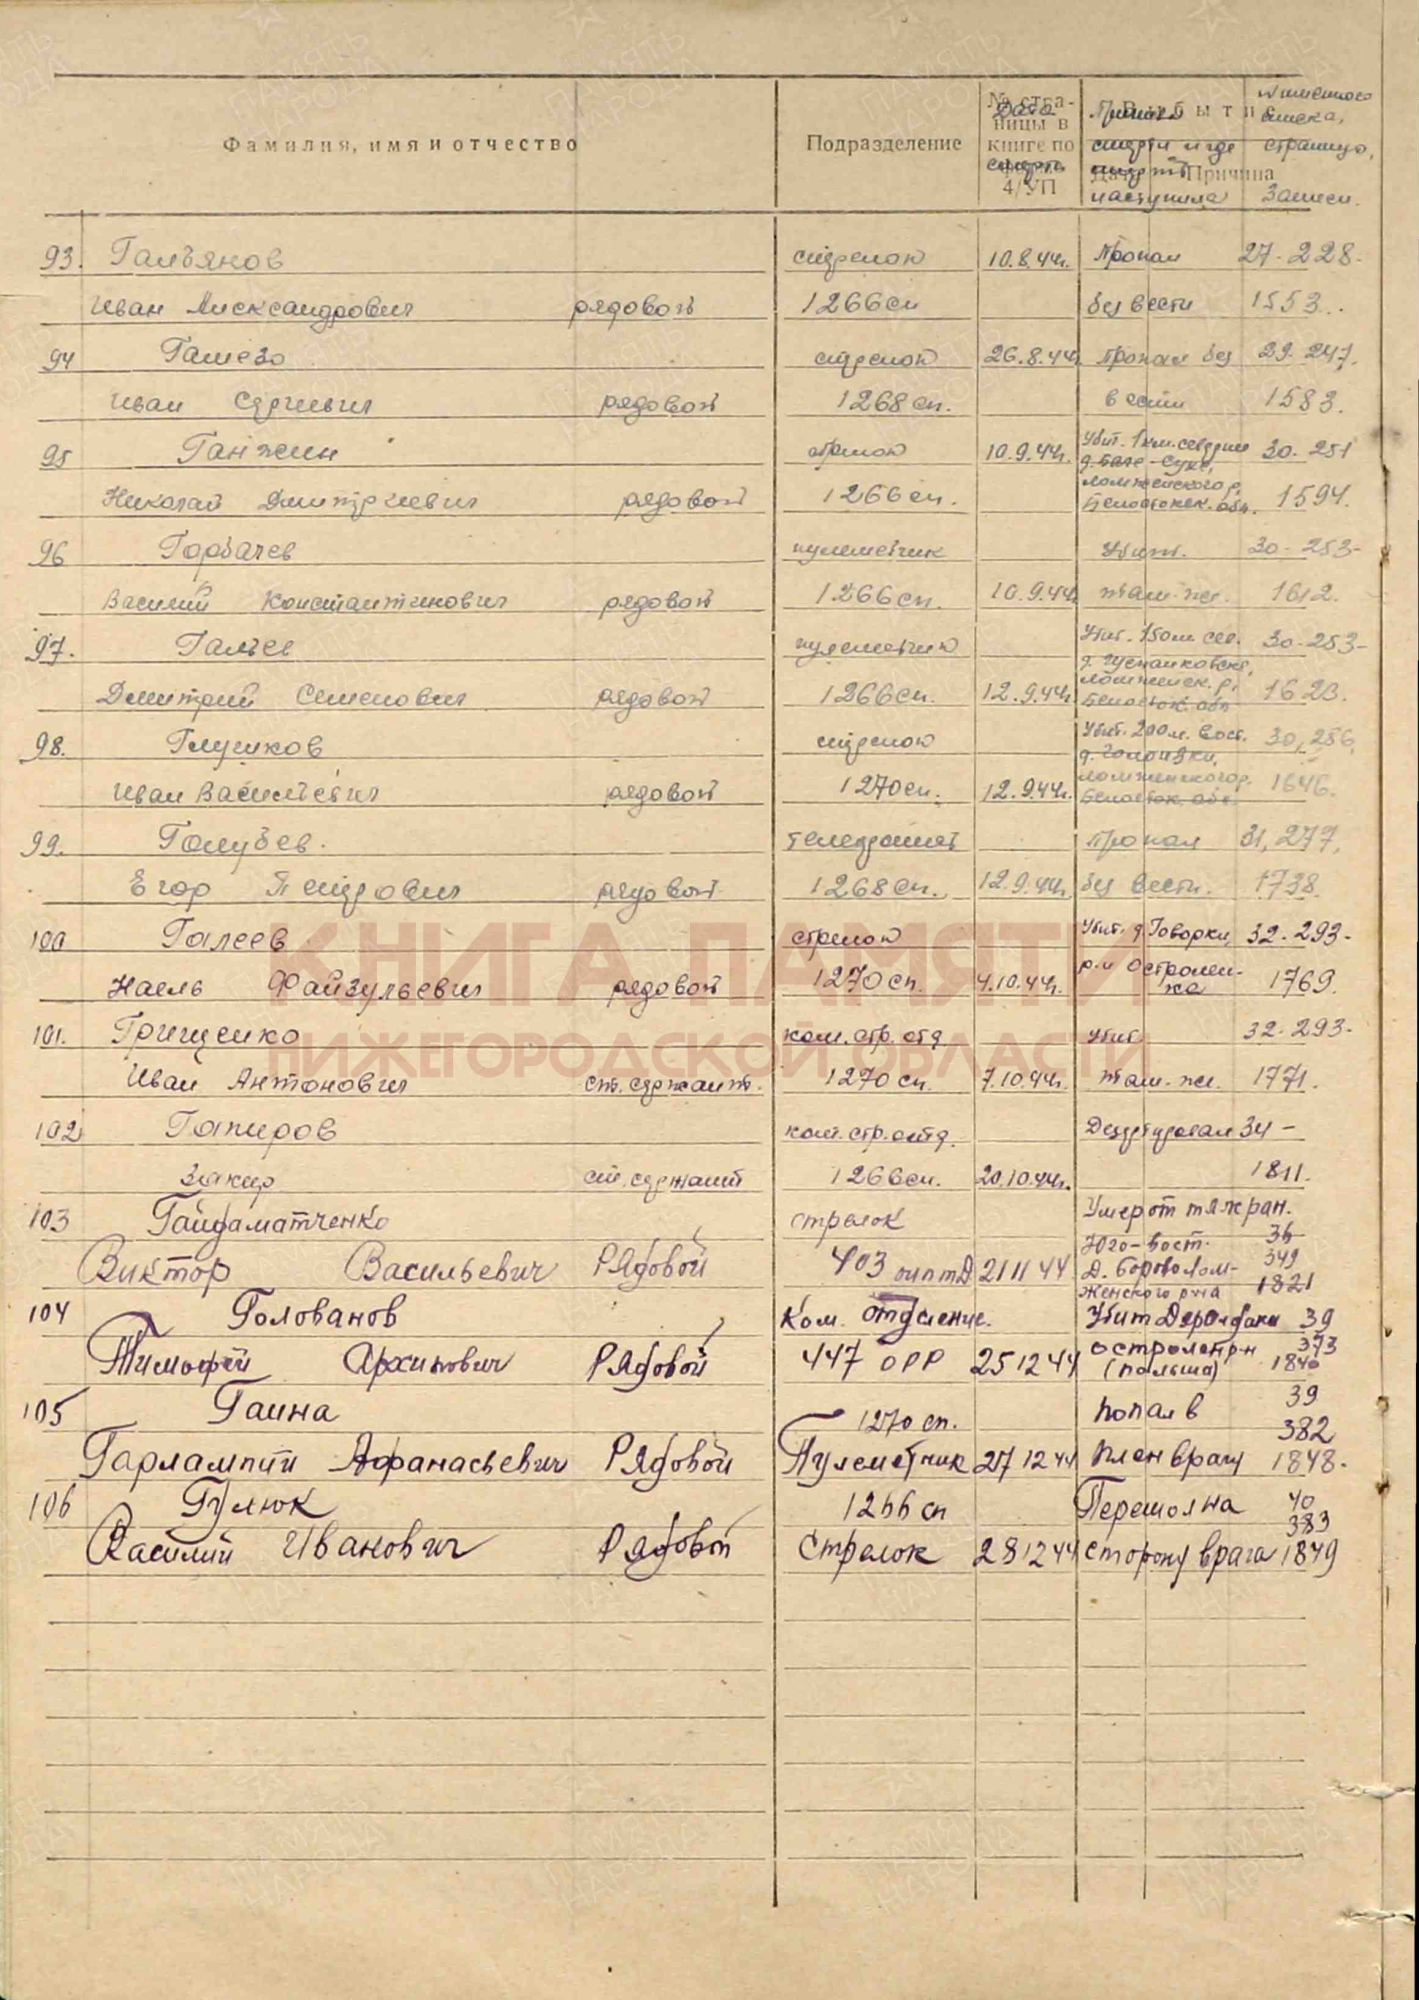 Фамилия, имя и отчество Подразделение № страницы в книге по форме 4/УП Выбытие Дата Причина
Дата смерти Причина смерти и где смерть наступила № именного списка, страница, записи.
93. Гальянов стрелок 10.8.44г. Пропал 27-228-
Иван Александрович рядовой 1266 сп без вести 1553.
94 Гашево стрелок 26.8.44г. пропал без 29-247.
Иван Сергеевич рядовой 1268 сп. вести 1583.
95 Ганжин стрелок 10.9.44г. Убит. 1 км. севернее 30-251
Николай Дмитриевич рядовой 1266 сп. Ломженского р. Белостокск. обл. 1594.
96 Горбачев пулеметчик Убит. 30-253-
Василий Константинович рядовой 1266 сп. 10.9.44г там же. 1612.
97. Гальев пулеметчик Убит. 150 м сев. 30-253-
Дмитрий Семенович рядовой 1266 сп. 12.9.44г Ломженск. р. Белосток. обл 1623.
98. Глушков стрелок Убит. 200 м. вост. 30,256,
Иван Васильевич рядовой 1270 сп. 12.9.44г. Ломженского р. Белосток. обл. 1646.
99. Голубев. телефонист пропал 31,277,
Егор Петрович рядовой 1268 сп. 12.9.44г. без вести. 1738.
100 Галеев стрелок Убит. д. Говорки, 32-293-
Наель Файзульевич рядовой 1270 сп. 4.10.44г. р-н Остролен-ка 1769.
101. Грищенко ком. стр. отд Убит 32-293-
Иван Антонович ст. сержант. 1270 сп. 7.10.44г. там-же. 1771.
102 Гапиров ком. стр. отд. Дезертировал 34-
Закир ст. сержант 1266 сп. 20.10.44г. 1811.
103 Гайдаматченко стрелок Умер от тяж ран. 36
Виктор Васильевич Рядовой 403 оиптд 21 11 44 Юго-вост. Д. Борово Лом-женского р-на 349 1821
104 Голованов Ком. отделение. Убит 39
Тимофей Архипович Рядовой 447 ОРР 25 12 44 остролен р-н (польша) 373 1840
105 Гаина 1270 сп. попал в 39 382
Гарлампий Афанасьевич Рядовой Пулеметчик 27 12 44 плен врагу 1848.
106 Гулюк 1266 сп Перешол на 40 383
Василий Иванович Рядовой Стрелок 28 12 44 сторону врага 1849
КНИГА ПАМЯТИ
НИЖЕГОРОДСКОЙ ОБЛАСТИ